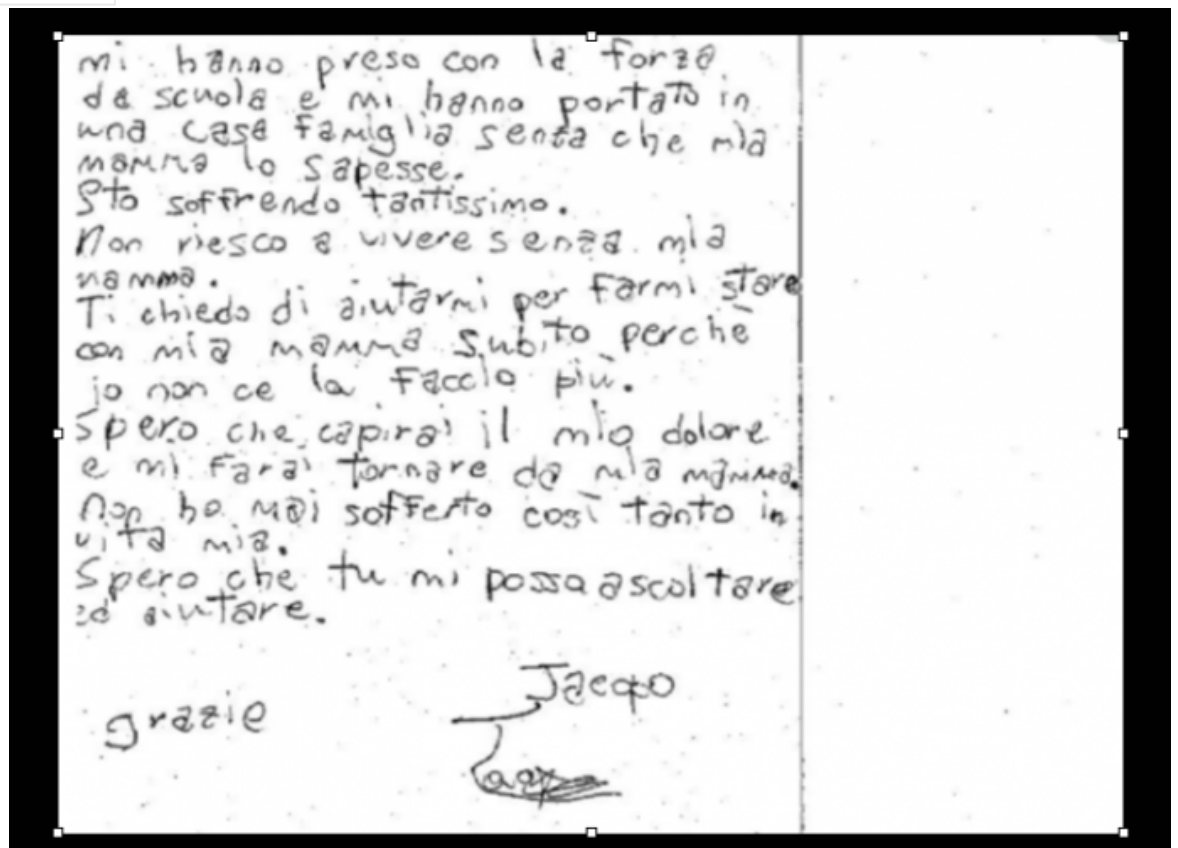 mi hanno preso con la forza
da scuola e mi hanno portato in
una casa famiglia senza che mia
mamma lo sapesse.
Sto soffrendo tantissimo.
Non riesco a vivere senza mia
mamma.
Ti chiedo di aiutarmi per farmi stare
con mia mamma subito perchè
io non ce la faccio più.
Spero che capirai il mio dolore
e mi farai tornare da mia mamma.
Non ho mai sofferto così tanto in
vita mia.
Spero che tu mi possa ascoltare
ed aiutare.
Jacopo
grazie